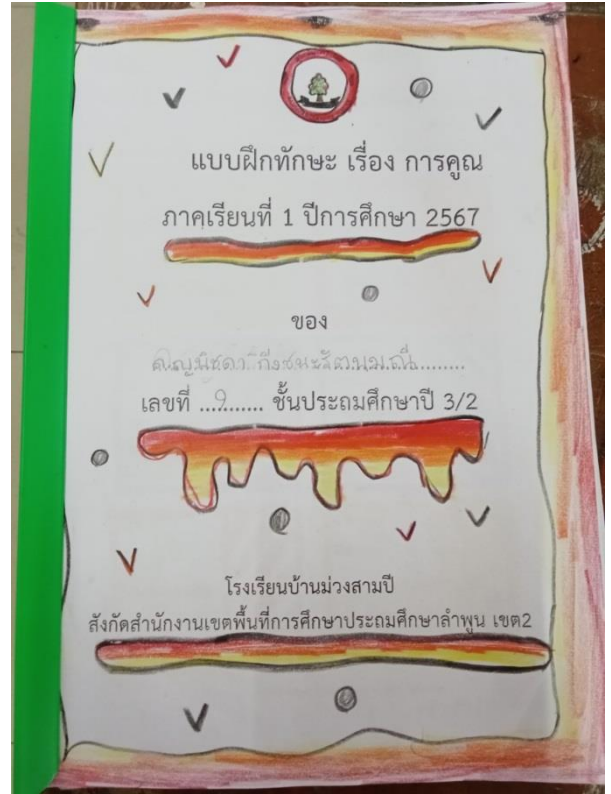 แบบฝึกทักษะ เรื่อง การคูณ
ภาคเรียนที่ 1 ปีการศึกษา 2567
ของ
เลขที่ ....9....... ชั้นประถมศึกษาปี 3/2
โรงเรียนบ้านม่วงสามปี
สังกัดสำนักงานเขตพื้นที่การศึกษาประถมศึกษาลำพูน เขต2